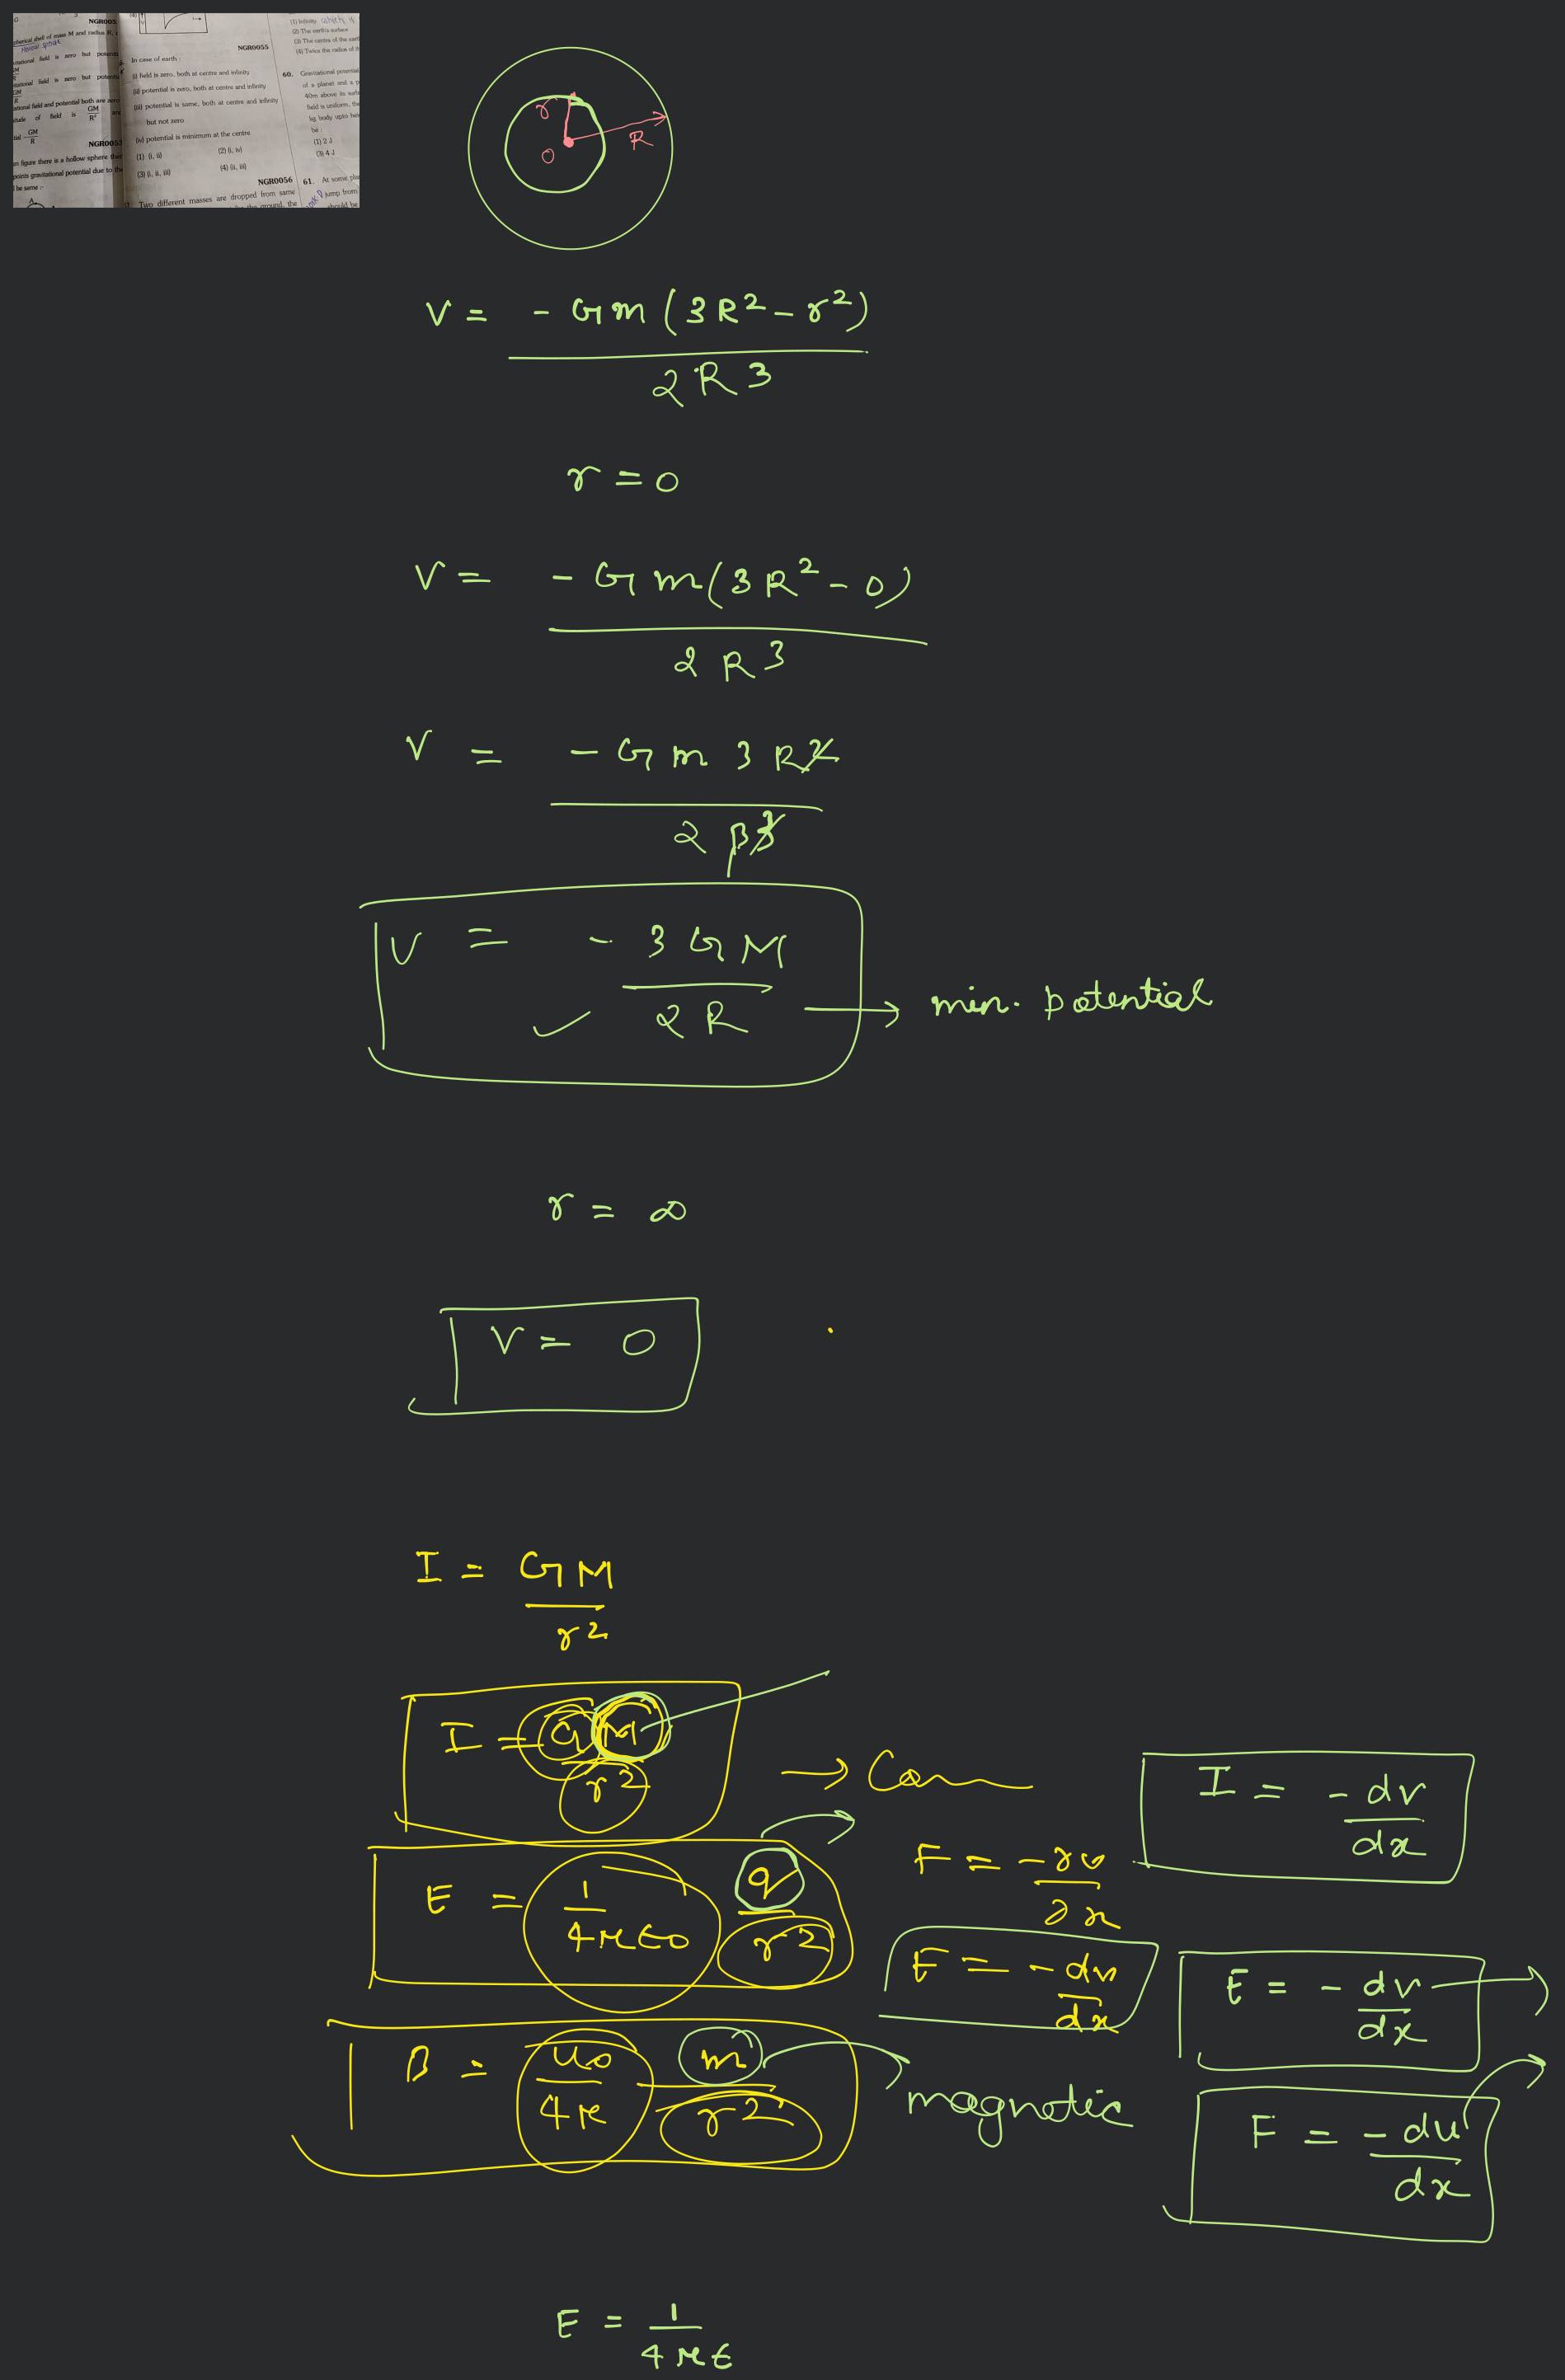 G
NGR005
spherical shell of mass M and radius R,
Hollow sphere
gravitational field is zero but potential
GM
R
gravitational field is zero but potential
GM
R
gravitational field and potential both are zero
magnitude of field is GM/R² and
potential -GM/R
NGR0053
In figure there is a hollow sphere then
points gravitational potential due to the
be same :-
A
NGR0055
In case of earth :
(i) field is zero, both at centre and infinity
(ii) potential is zero, both at centre and infinity
(iii) potential is same, both at centre and infinity
but not zero
(iv) potential is minimum at the centre
(1) (i, ii) (2) (i, iv)
(3) (i, ii, iii) (4) (ii, iii)
NGR0056
Two different masses are dropped from same
the ground, the
(1) Infinity which is
(2) The earth's surface
(3) The centre of the earth
(4) Twice the radius of the
60. Gravitational potential
of a planet and a p
40m above its surf
field is uniform, the
kg body upto
be :
(1) 2 J
(3) 4 J
61. At some pla
jump from
should be
r
O
R
V = -Gm(3R²-r²)
2R³
r = 0
V = -Gm(3R²-0)
2R³
V = -Gm 3R²
2R³
V = -3GM
2R → min. potential
r = ∞
V = 0
I = GM
r²
I = GM
r²
→ Con
I = -dv
dx
E = 1 q
4πε0 r²
F = -∂u
∂x
E = -dv
dx
E = -dv
dx
B = u0 m
4π r²
magnetic
F = -du
dx
E = 1
4πε